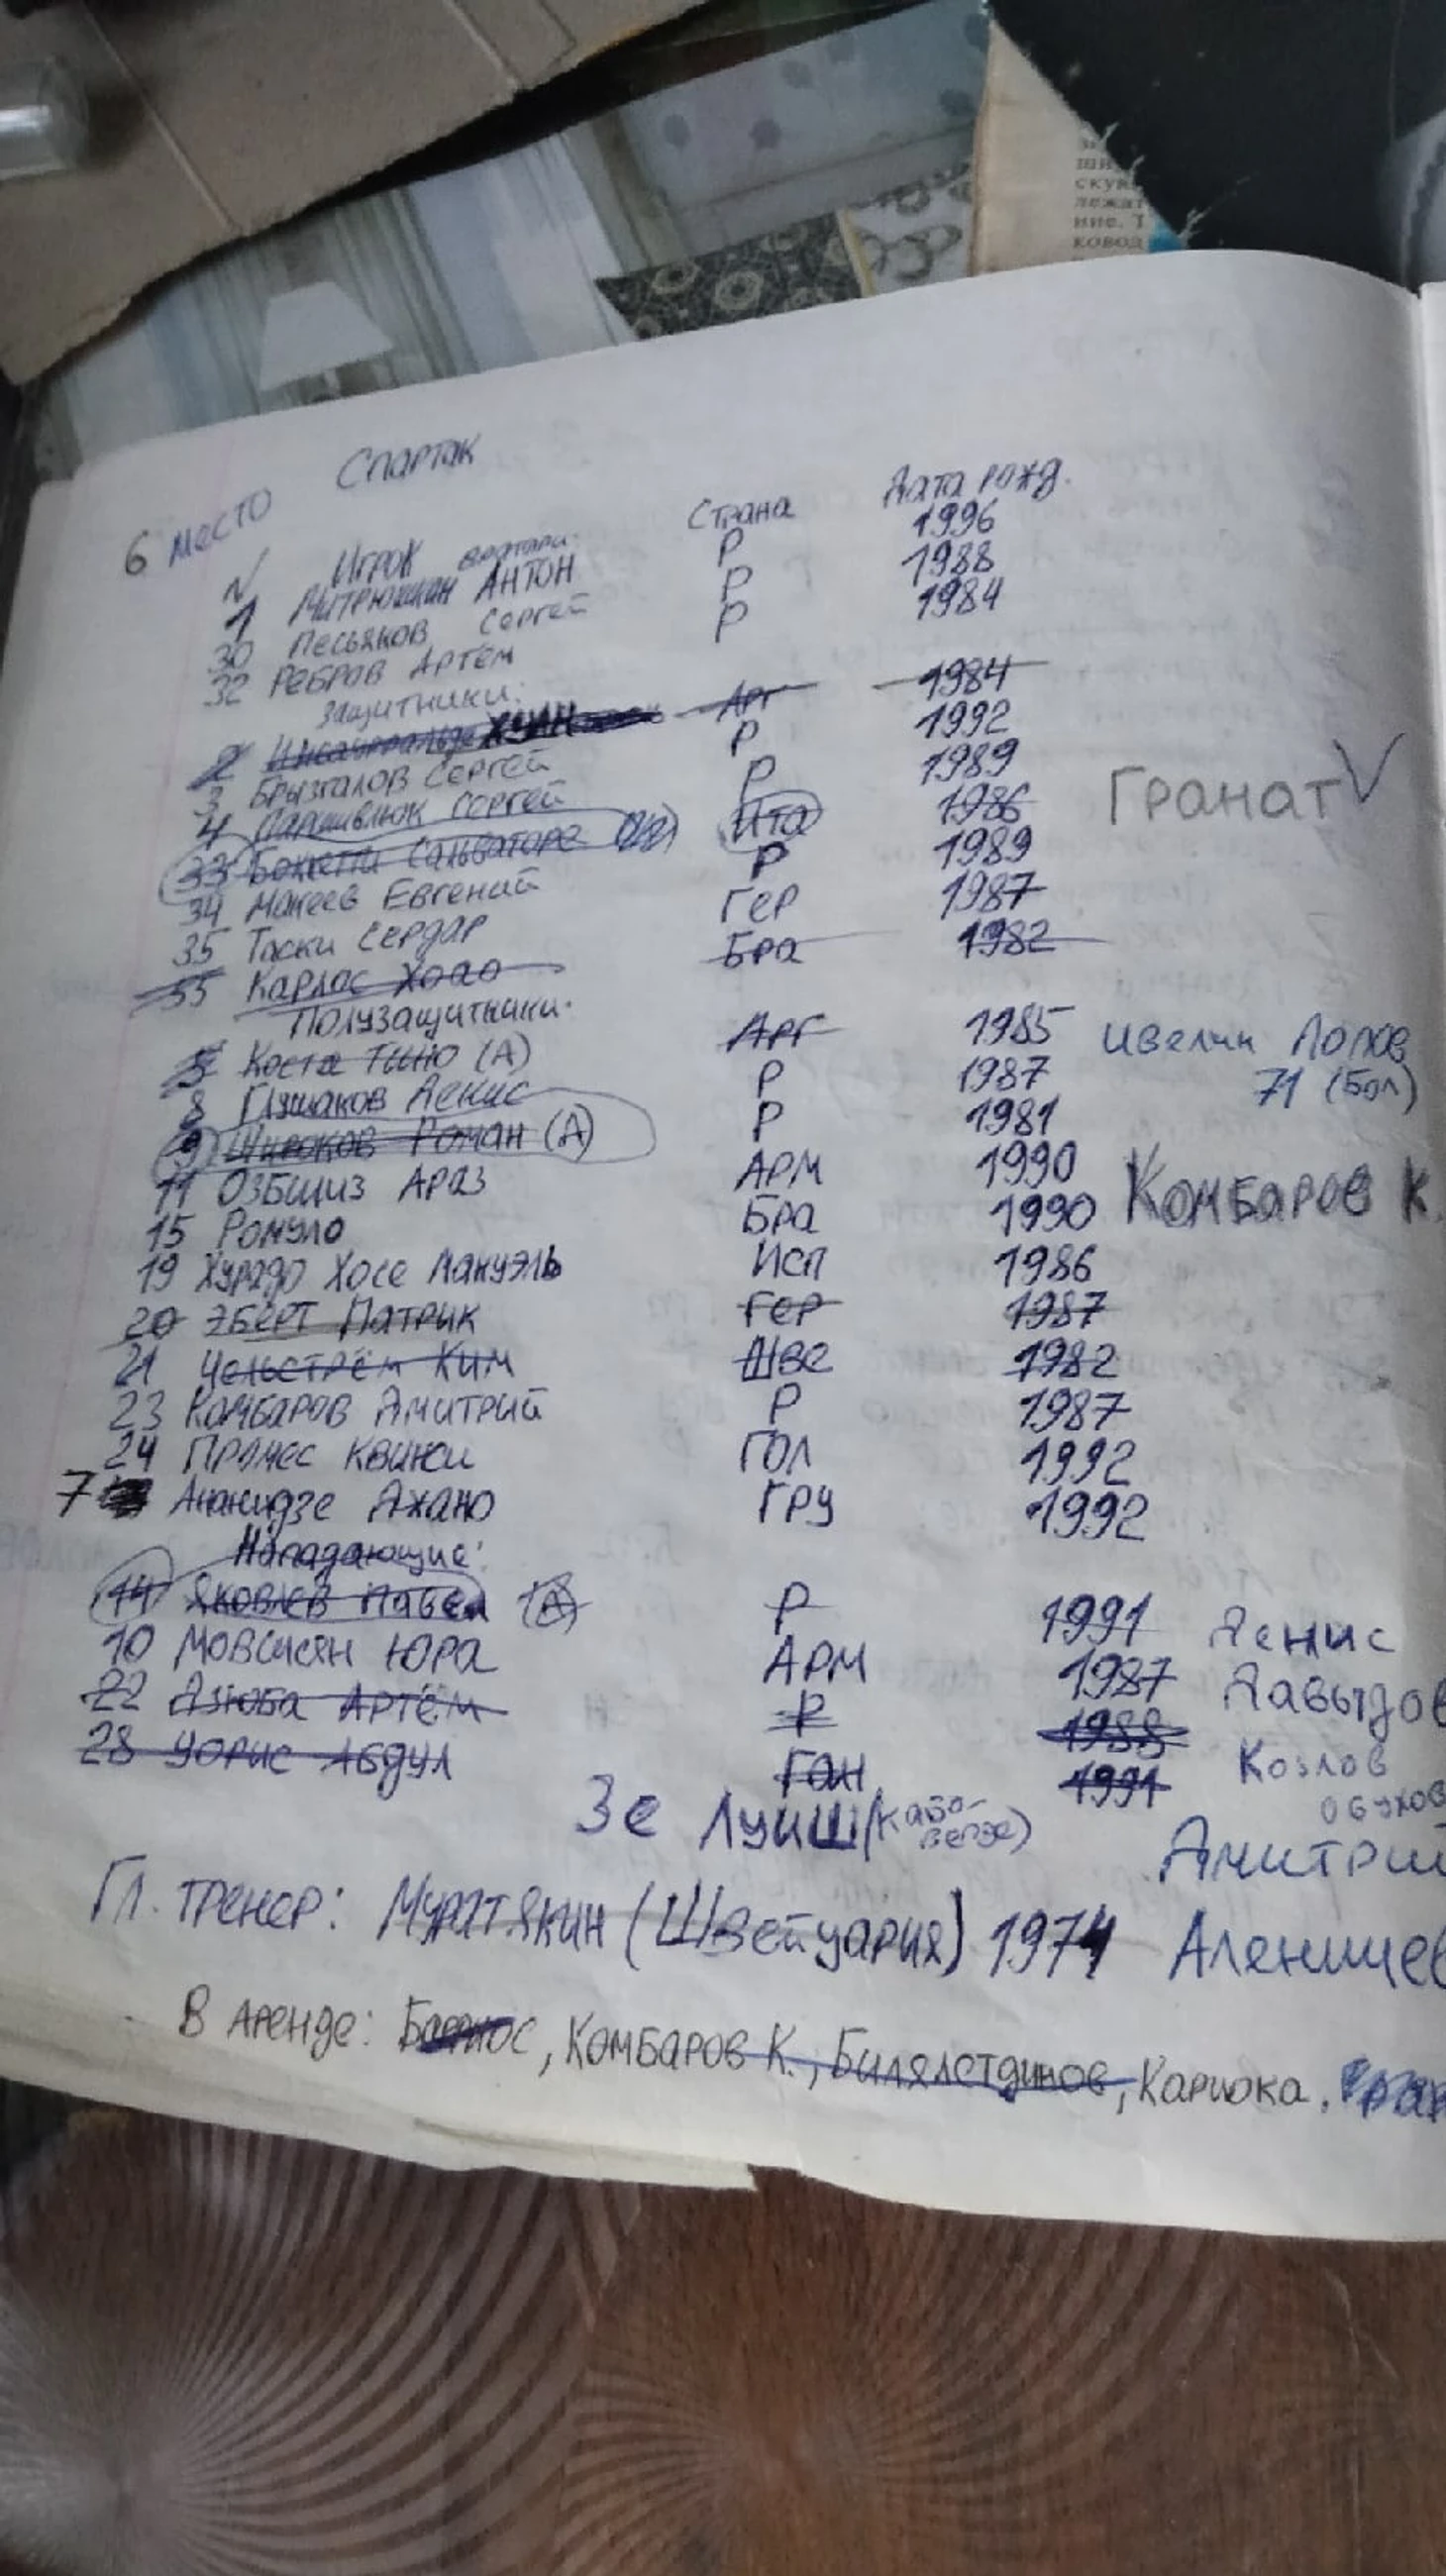 Спартак
6 место
N Игрок Страна Дата рожд.
вратари:
1 Митрюшкин Антон Р 1996
30 Песьяков Сергей Р 1988
32 Ребров Артём Р 1984
Защитники:
2 Инсаурральде Хуан Арг 1984
3 Брызгалов Сергей Р 1992
4 Паршивлюк Сергей Р 1989
33 Боккетти Сальваторе Ита 1986
Гранат V
34 Макеев Евгений Р 1989
35 Таски Сердар Гер 1987
55 Карлос Жоао Бра 1982
Полузащитники:
5 Коста Тино (А) Арг 1985
Ивелин Попов
71 (Бол)
8 Глушаков Денис Р 1987
9 Широков Роман (А) Р 1981
11 Озбилиз Араз АРМ 1990
Комбаров К.
15 Ромуло Бра 1990
19 Хурадо Хосе Мануэль Исп 1986
20 Эберт Патрик Гер 1987
21 Чельстрём Ким Шве 1982
23 Комбаров Дмитрий Р 1987
24 Промес Квинси ГОЛ 1992
7 Ананидзе Джано Гру 1992
Нападающие:
14 Яковлев Павел (А) Р 1991
Денис
10 Мовсисян Юра АРМ 1987
Давыдов
22 Дзюба Артём Р 1988
28 Уорис Абдул Ган 1991
Козлов
Обухов
Зе Луиш (Кабо-
Верде)
Дмитрий
Гл. тренер: Мурат Якин (Швейцария) 1974 Аленичев
В Аренде: Комбаров К., Билялетдинов, Кариока,